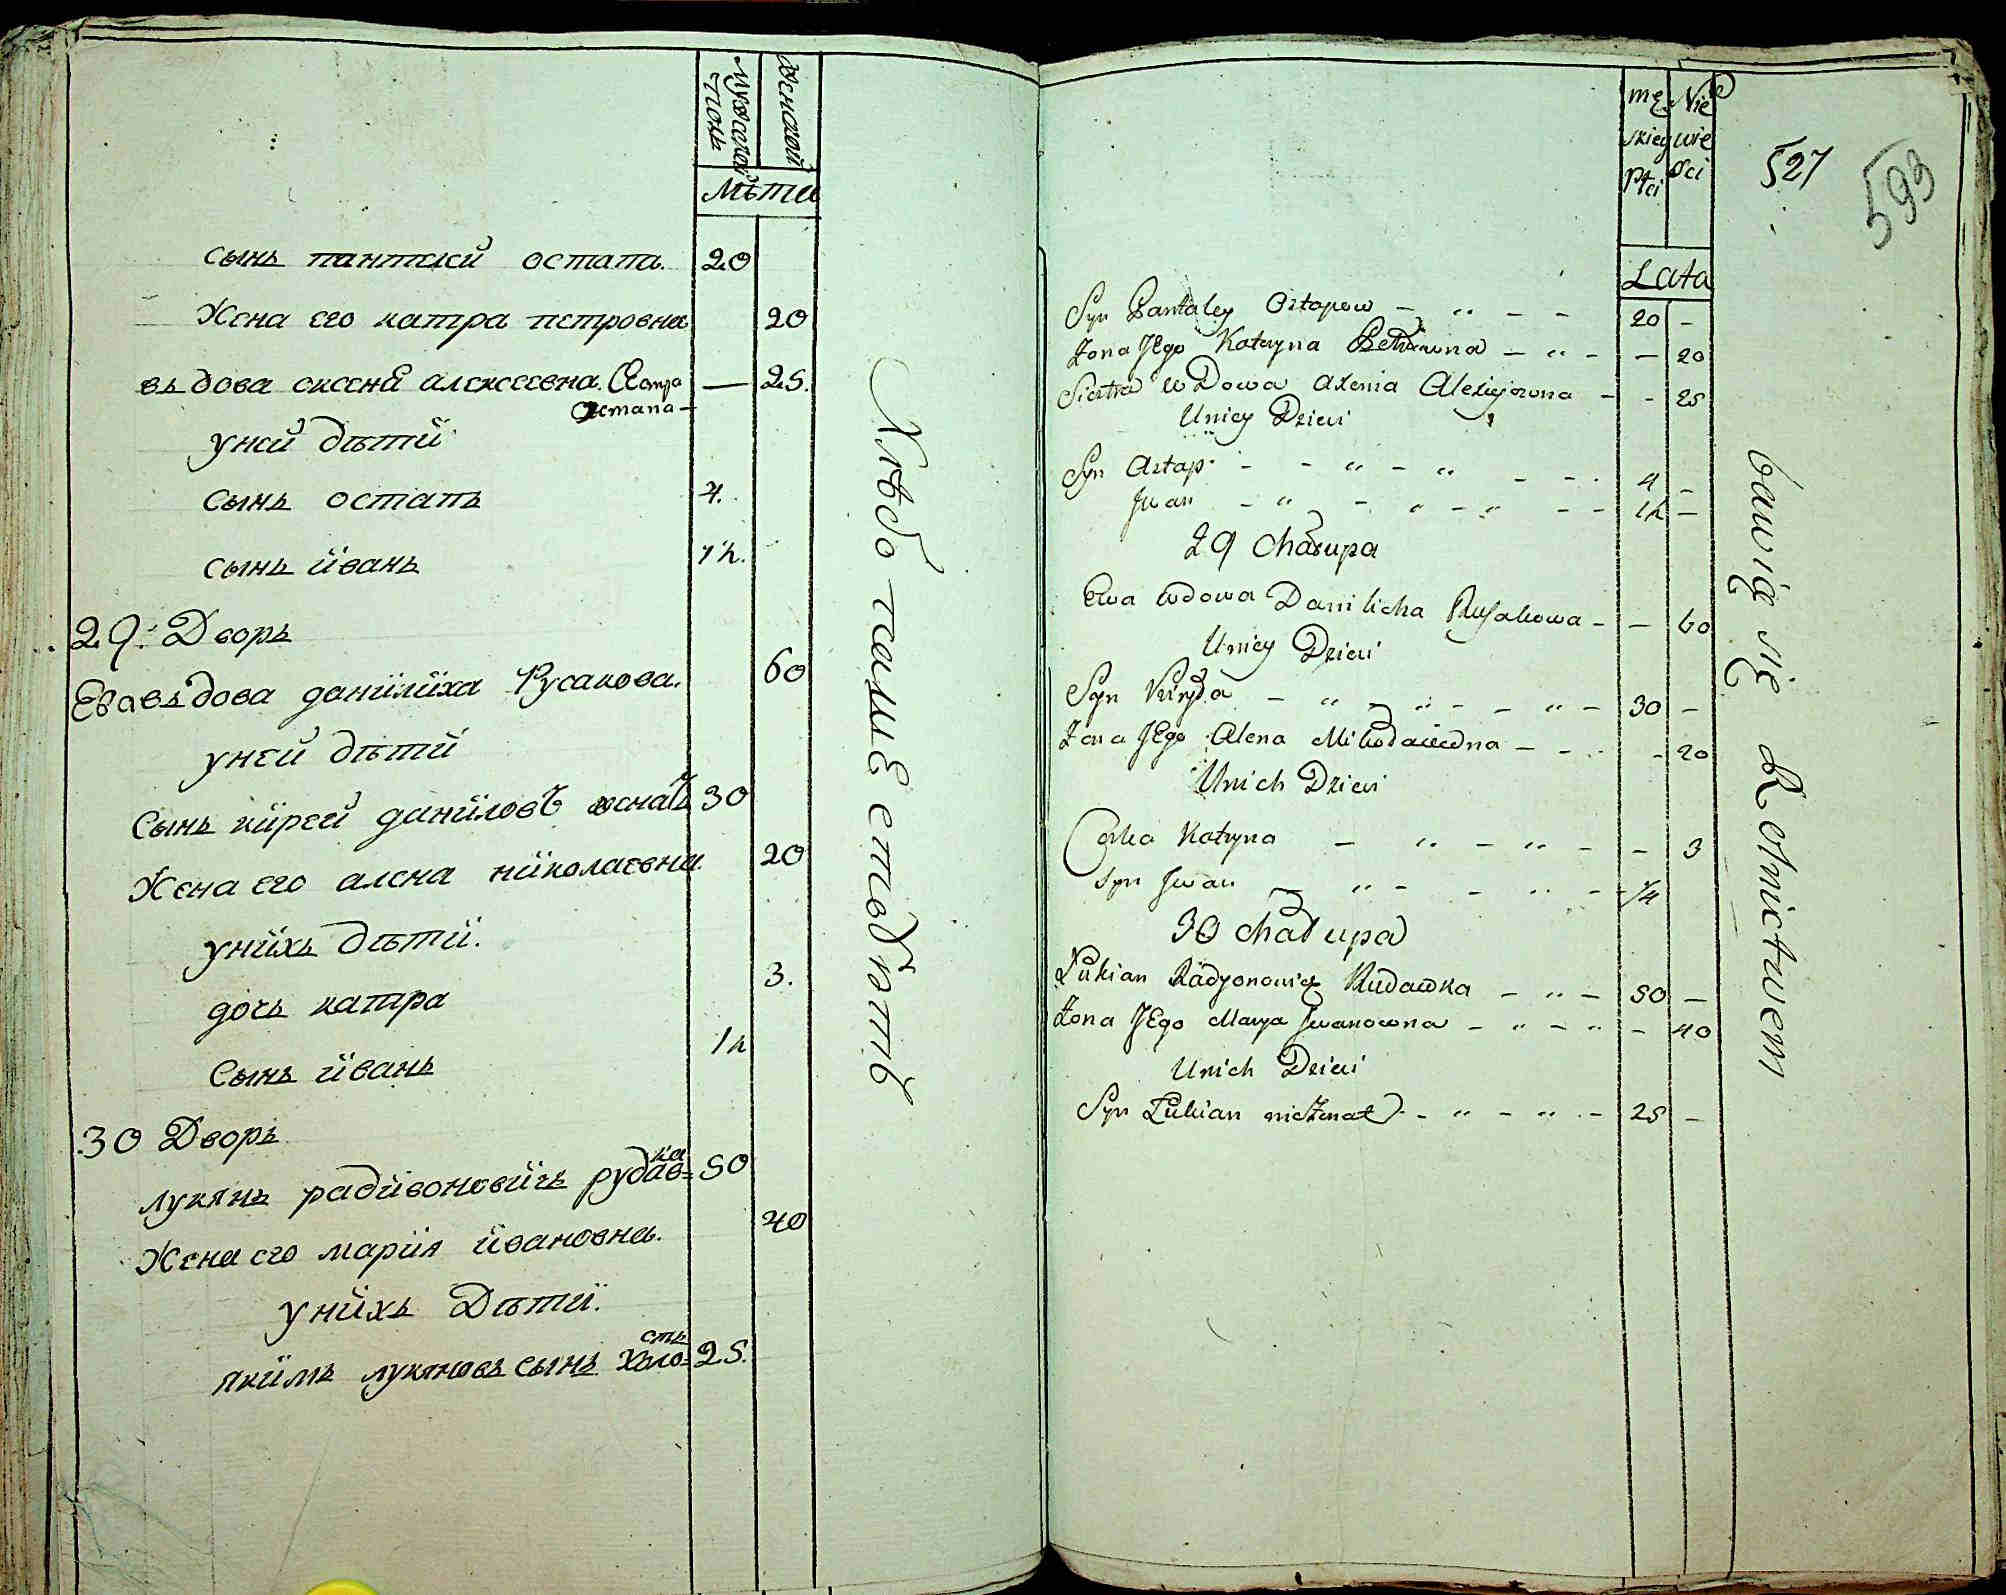 мужеской женской
полъ
лѣта
сынъ пантелей остапа. 20
Жена его катра петровна 20
въдова оксена алексеевна. Сестра — 25.
Остапа —
уней дѣти
сынъ остапъ 4.
сынъ иванъ 1½.
29: Дворъ
Ева въдова данилиха Русакова. 60
уней дѣти
Сынъ кирей даниловъ женатъ 30
Жена его алена николаевна. 20
унихъ дѣти.
дочь катра 3.
Сынъ иванъ ½
30 Дворъ
лукянъ радивоновичъ рудавка 50
Жена его мария ивановна. 40
унихъ Дѣти.
якимъ лукяновъ сынъ холостъ 25.
Хлѣбопашествомъ
męskiey płci Niewieści
527
599
Lata
Syn Pantaley Ostapow 20 –
Zona JEgo Katryna Petrowna – 20
Siestra wDowa Axenia Alexiejowna - 25
Uniey Dzieci
Syn Astap 4 –
Jwan 1½ –
29 Chałupa
Ewa wdowa Danilicha Rusakowa – 60
Uniey Dzieci
Syn 30 –
Zona JEgo Alena Mikołaiewna - 20
Unich Dzieci
Corka Katryna – 3
Syn Jwan
30 chałupa
Łukian Radyonowicz Rudawka 50 –
Zona JEgo Marya Jwanowna – 40
Unich Dzieci
Syn Łukian nieżonat 25 –
bawią się Rolnictwem